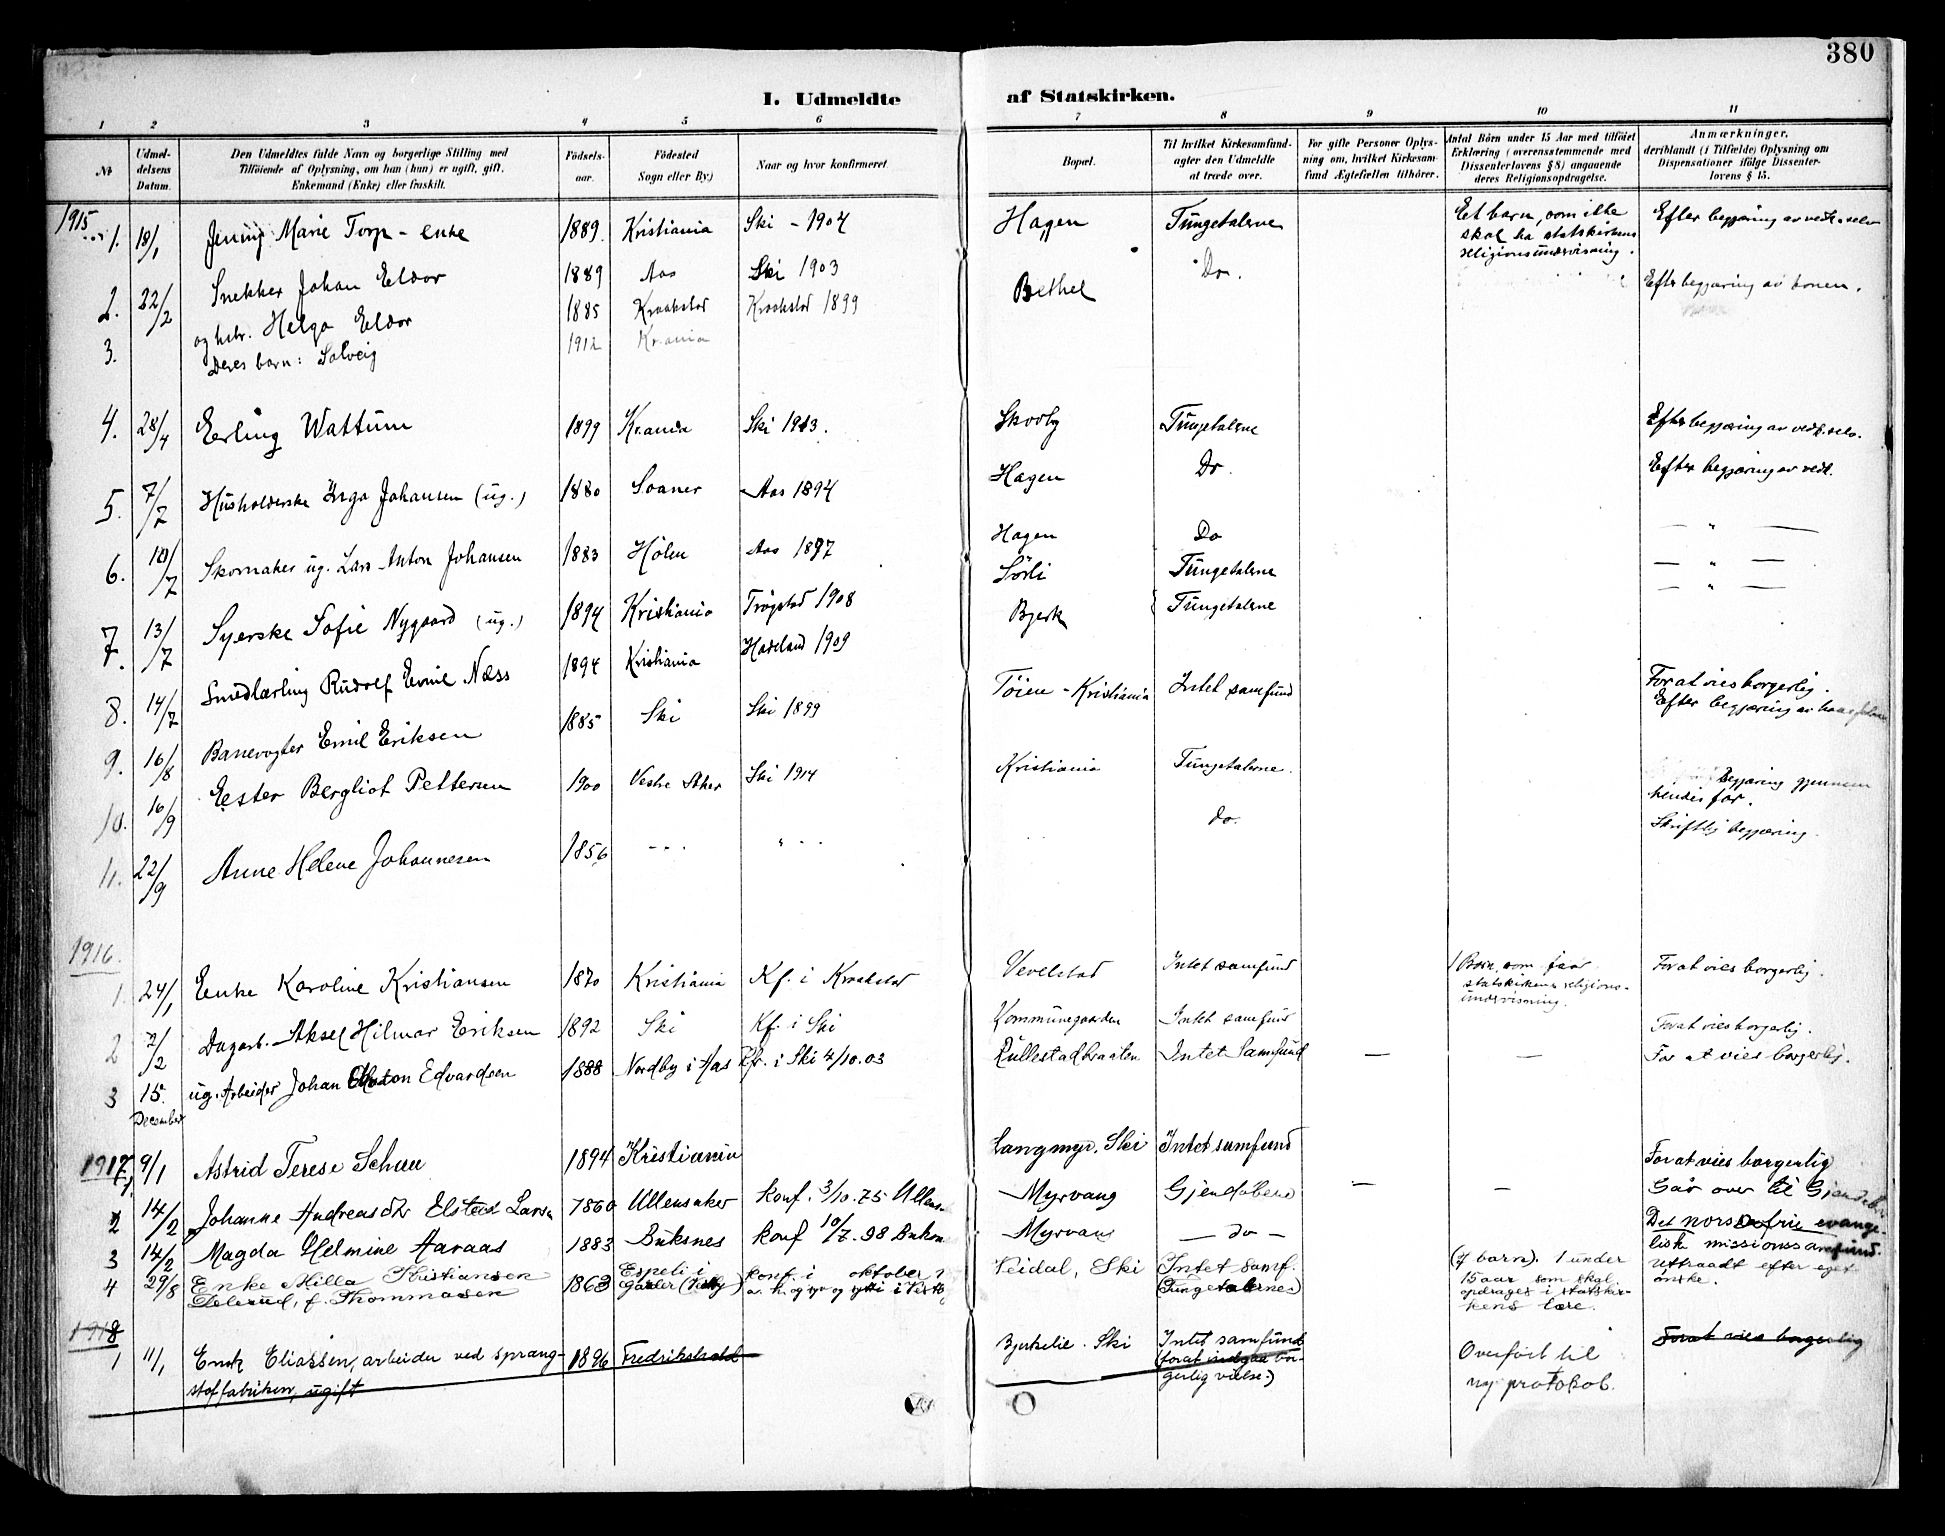 380
I. Udmeldte af Statskirken.
1 2 3 4 5 6 7 8 9 10 11
№
Udmeldelsens Datum.
Den Udmeldtes fulde Navn og borgerlige Stilling med
Tilføiende af Oplysning, om han (hun) er ugift, gift,
Enkemand (Enke) eller fraskilt.
Fødselsaar.
Fødested
Sogn eller By.)
Naar og hvor konfirmeret
Bopæl.
Til hvilket Kirkesamfund-
agter den Udmeldte
at træde over.
For gifte Personer Oplys-
ning om, hvilket Kirkesam-
fund Ægtefællen tilhører.
Antal Børn under 15 Aar med tilføiet
Erklæring (overensstemmende med
Dissenterlovens § 8) angaaende
deres Religionsopdragelse.
Anmærkninger,
deriblandt (i Tilfælde) Oplysning om
Dispensationer ifølge Dissenter-
lovens § 15.
1915
1. 18/1 Jenny Marie Torp - enke 1889 Kristiania Ski - 1904 Hagen Tungetalerne Et barn, som ikke
skal ha statskirkens
religionsundervisning.
Efter begjæring av vedk. selv
2. 22/2 Snekker Johan Eldor 1889 Aas Ski 1903 Bethel Do. Efter begjæring av
3. og hstr. Helga Eldor 1885 Kraakstad Kraakstad 1899
Deres barn: Solveig 1912 Kr.ania
4. 28/4 Erling Wattum 1899 Kr.ania Ski 1913. Skovby Tungetalerne Efter begjæring av vedk. selv.
5. 7/7 Husholderske Inga Johansen (ug.) 1880 Soaner Aas 1894 Hagen Do. Efter begjæring av vedk.
6. 10/7 Skomaker ug. Lars Anton Johansen 1883 Hølen Aas 1897 Hagen Do — " —
7. 13/7 Syerske Sofie Nygaard (ug.) 1894 Kristiania Trøgstad 1908 Sørli Tungetalerne — " —
8. 14/7 Smedlærling Rudolf Emil Næss 1894 Kristiania Hadeland 1909 Bjerk Tungetalerne — " —
9. 16/8 Banevogter Emil Eriksen 1885 Ski Ski 1899 Tøien - Kristiania Intet samfund For at vies borgerlig.
Efter begjæring av
10. 16/9 Ester Bergliot Pettersen 1900 Vestre Aker Ski 1914 Kristiania Tungetalerne. begjæring gjennem
hendes far.
11. 22/9 Anne Helene Johannesen 1856 - - - " - - do. Skriftlig begjæring.
1916.
1. 24/1 Enke Karoline Kristiansen 1870 Kristiania Kf. i Kraakstad Vevelstad Intet samfund 1 Barn, som faar
statskirkens religions-
undervisning.
For at vies borgerlig.
2 7/2 Dagarb. Aksel Hilmar Eriksen 1892 Ski Kf. i Ski Kommunegaarden Intet samfund For at vies borgerlig.
3 15. December ug. Arbeider Johan Anton Edvardsen 1888 Nordby i Aas Kfr. i Ski 4/10.03 Rullestadbraaten Intet Samfund — — For at vies borgerlig.
1917
1 9/1 Astrid Terese Schau 1894 Kristiania Langmyr. Ski Intet samfund For at vies borgerlig
2 14/2 Johanne Andreasdtr Elsted Larsen 1860 Ullensaker konf. 3/10.75 Ullens. Myrvang Gjendøbere — — Går over til Gjendøb.
3 14/2 Magda Helmine Aaraas 1883 Buksnes konf 10/7.98 Myrvang — do — Det norske frie evange-
liske missionssamfund
4 29/8 Enke Milla Kristiansen 1863 Espeli i konf. i oktober Veidal, Ski Intet samf. (7 barn). 1 under
Elelsrud, f. Thommasen Garder (Vestby) (Tungetalernes) 15 aar som skal
opdrages i statskir-
kens lære.
Uttraadt efter eget
ønske.
1918
1 11/1 Enok Eliassen, arbeider ved spræng- 1896 Fredrikshald Bjerkelie. Ski Intet samfund Overført til For at vies borgerlig
stoffabriken, ugift (forat indgaa bor- ny protokol.
gerlig vielse.)